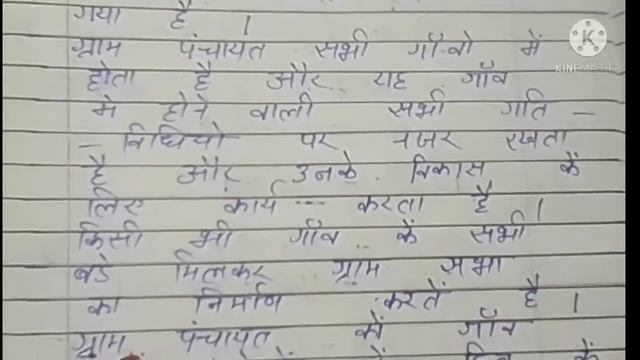 गया है।
ग्राम पंचायत सभी गाँवो में
होता है और यह गाँव
मे होने वाली सभी गति -
- विधियो पर नजर रखता
है और उनके विकास के
लिए कार्य --- करता है।
किसी भी गाँव के सभी
बडे मिलकर ग्राम सभा
का निर्माण करतें है।
ग्राम पंचायत को गाँव
K
KINEMASTER